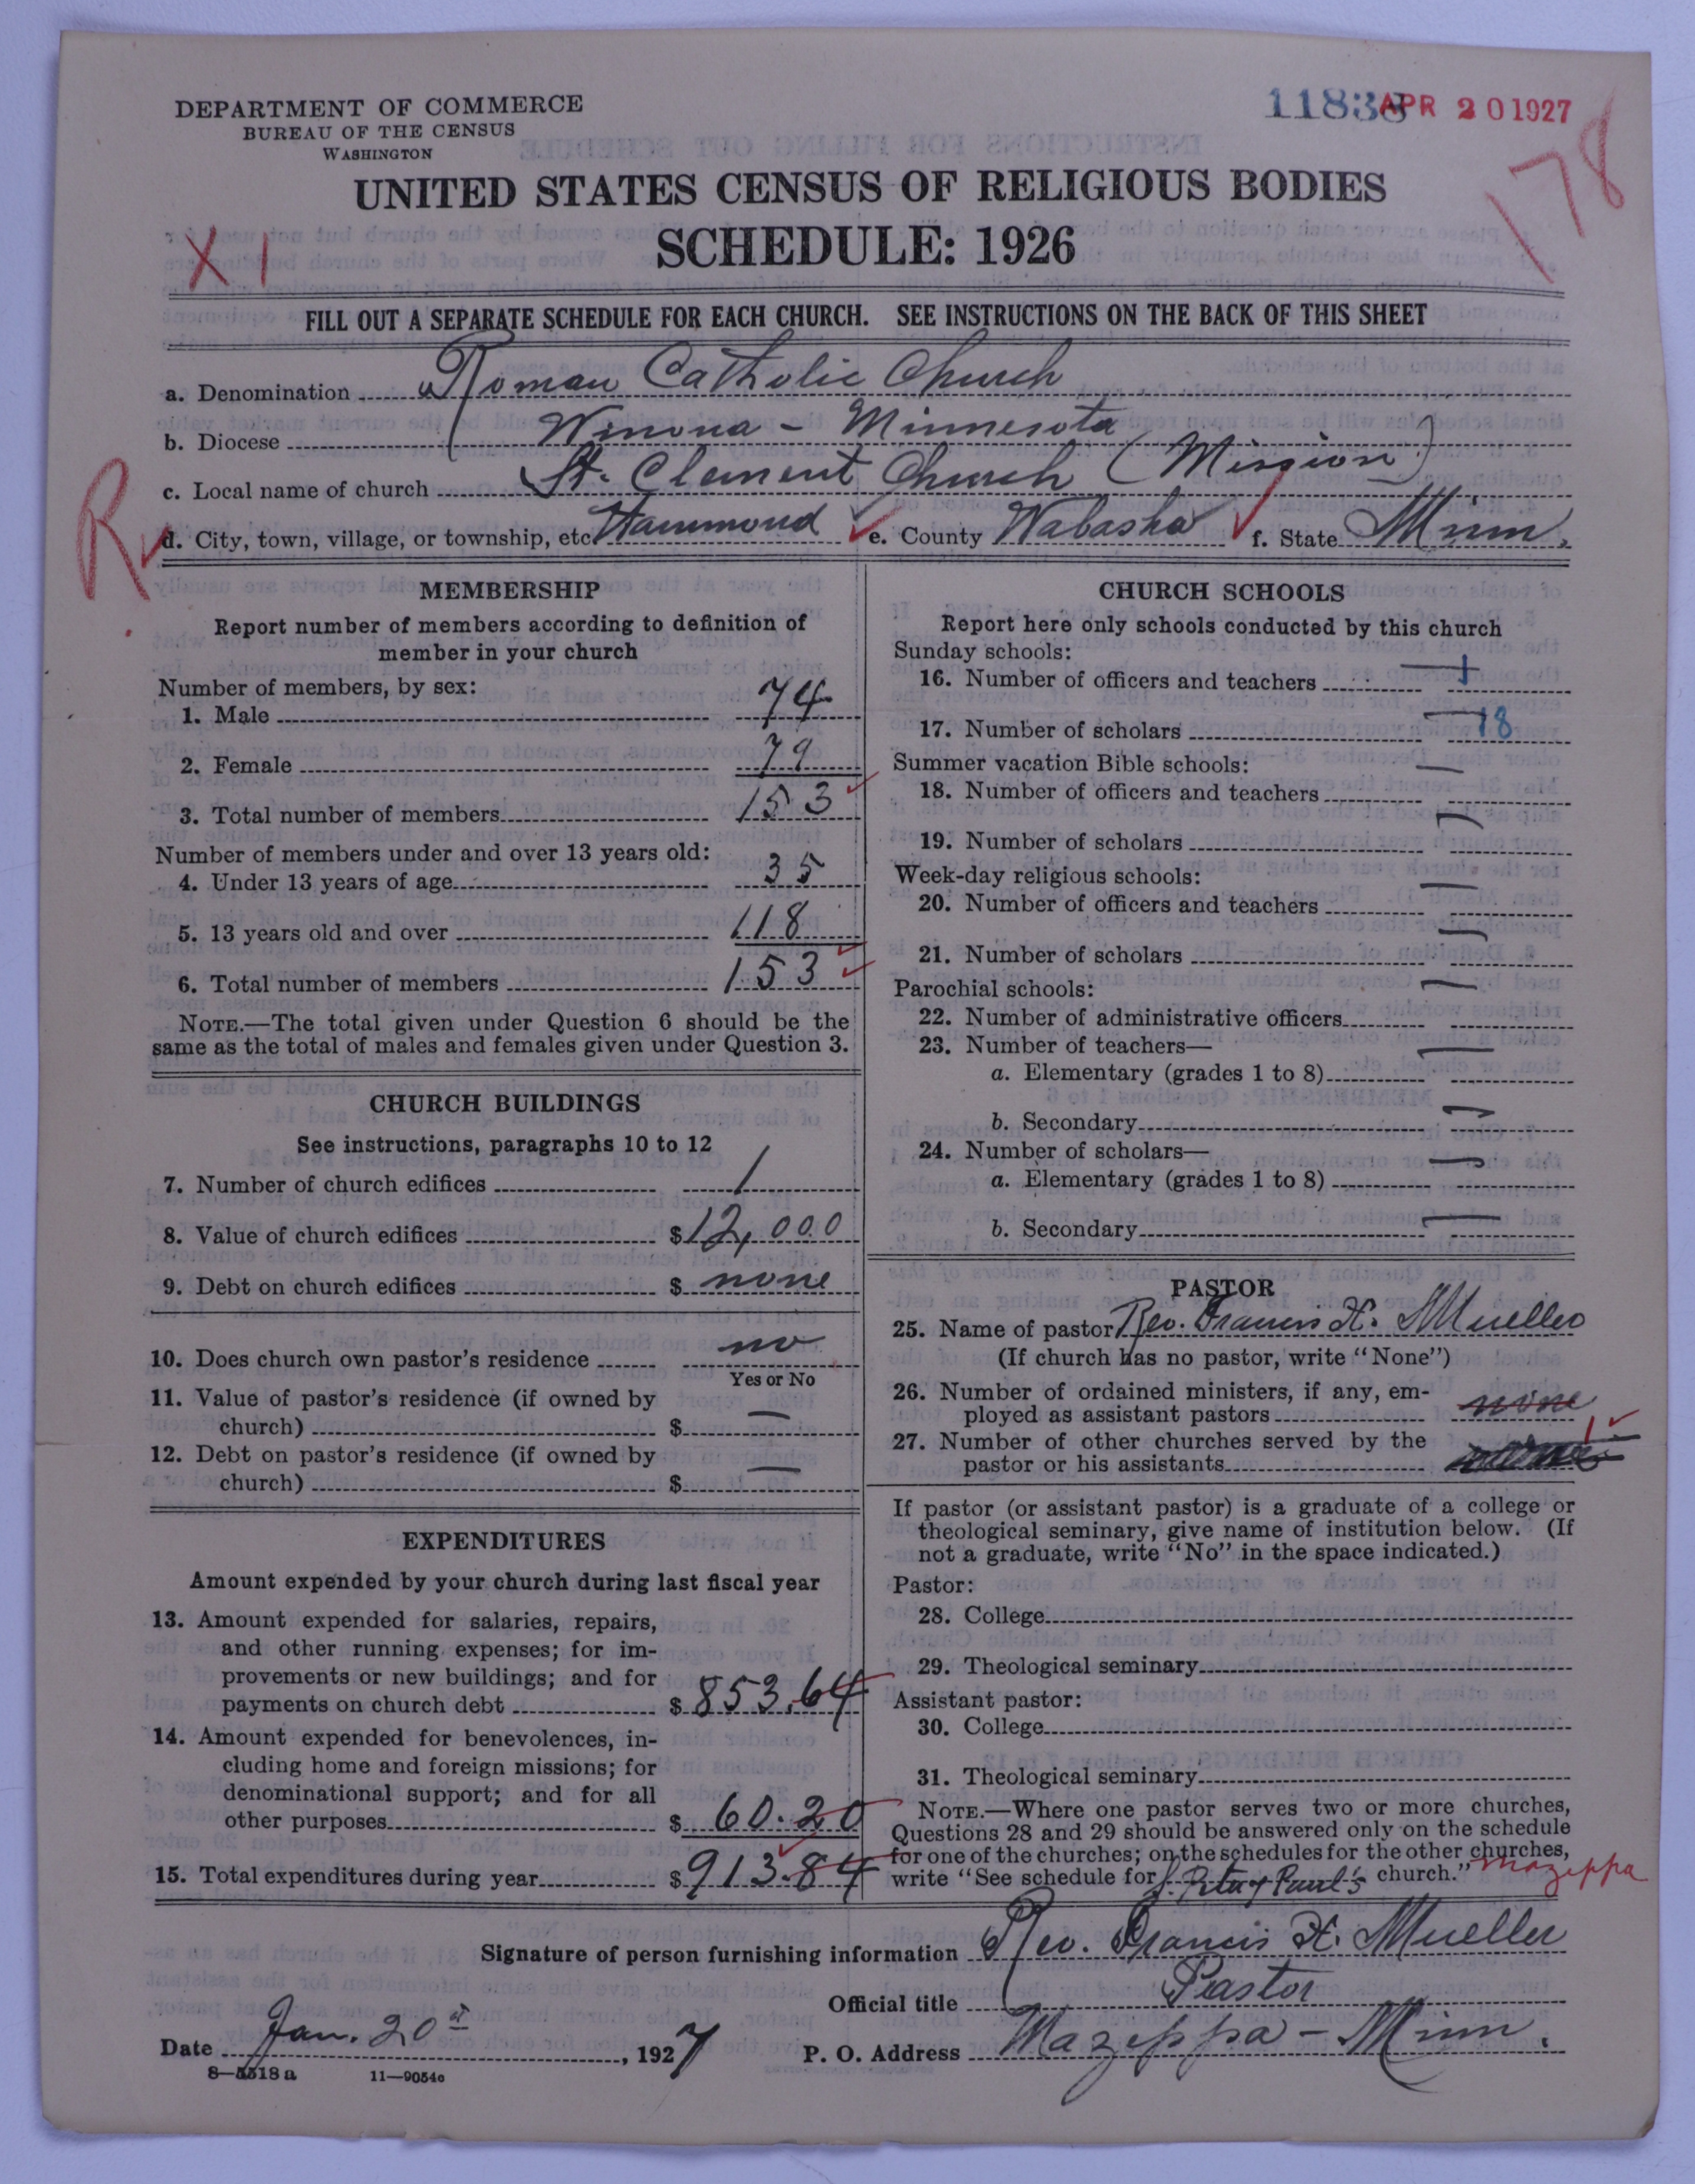 DEPARTMENT OF COMMERCE
BUREAU OF THE CENSUS
WASHINGTON
11838 APR 20 1927
178
UNITED STATES CENSUS OF RELIGIOUS BODIES
SCHEDULE: 1926
X 1
FILL OUT A SEPARATE SCHEDULE FOR EACH CHURCH. SEE INSTRUCTIONS ON THE BACK OF THIS SHEET
a. Denomination Roman Catholic Church
b. Diocese Winona - Minnesota
c. Local name of church St. Clement Church (Mission)
R
d. City, town, village, or township, etc. Hammond e. County Wabasha f. State Minn.
MEMBERSHIP
Report number of members according to definition of
member in your church
Number of members, by sex:
1. Male 74
2. Female 79
3. Total number of members 153
Number of members under and over 13 years old:
4. Under 13 years of age 35
5. 13 years old and over 118
6. Total number of members 153
NOTE.—The total given under Question 6 should be the
same as the total of males and females given under Question 3.
CHURCH BUILDINGS
See instructions, paragraphs 10 to 12
7. Number of church edifices 1
8. Value of church edifices $12,000
9. Debt on church edifices $ none
10. Does church own pastor's residence no
Yes or No
11. Value of pastor's residence (if owned by
church) $ —
12. Debt on pastor's residence (if owned by
church) $ —
EXPENDITURES
Amount expended by your church during last fiscal year
13. Amount expended for salaries, repairs,
and other running expenses; for im-
provements or new buildings; and for
payments on church debt $ 853.64
14. Amount expended for benevolences, in-
cluding home and foreign missions; for
denominational support; and for all
other purposes $ 60.20
15. Total expenditures during year $ 913.84
CHURCH SCHOOLS
Report here only schools conducted by this church
Sunday schools:
16. Number of officers and teachers — 1
17. Number of scholars — 18
Summer vacation Bible schools:
18. Number of officers and teachers —
19. Number of scholars —
Week-day religious schools:
20. Number of officers and teachers —
21. Number of scholars —
Parochial schools:
22. Number of administrative officers —
23. Number of teachers—
a. Elementary (grades 1 to 8) —
b. Secondary —
24. Number of scholars—
a. Elementary (grades 1 to 8) —
b. Secondary —
PASTOR
25. Name of pastor Rev. Francis X. Mueller
(If church has no pastor, write "None")
26. Number of ordained ministers, if any, em-
ployed as assistant pastors none
27. Number of other churches served by the
pastor or his assistants 1
If pastor (or assistant pastor) is a graduate of a college or
theological seminary, give name of institution below. (If
not a graduate, write "No" in the space indicated.)
Pastor:
28. College
29. Theological seminary
Assistant pastor:
30. College
31. Theological seminary
NOTE.—Where one pastor serves two or more churches,
Questions 28 and 29 should be answered only on the schedule
for one of the churches; on the schedules for the other churches,
write "See schedule for Peter & Paul's church." Mazeppa
Signature of person furnishing information Rev. Francis X. Mueller
Official title Pastor
Date Jan. 20, 1927 P. O. Address Mazeppa - Minn.
8—5518 a 11—9054c